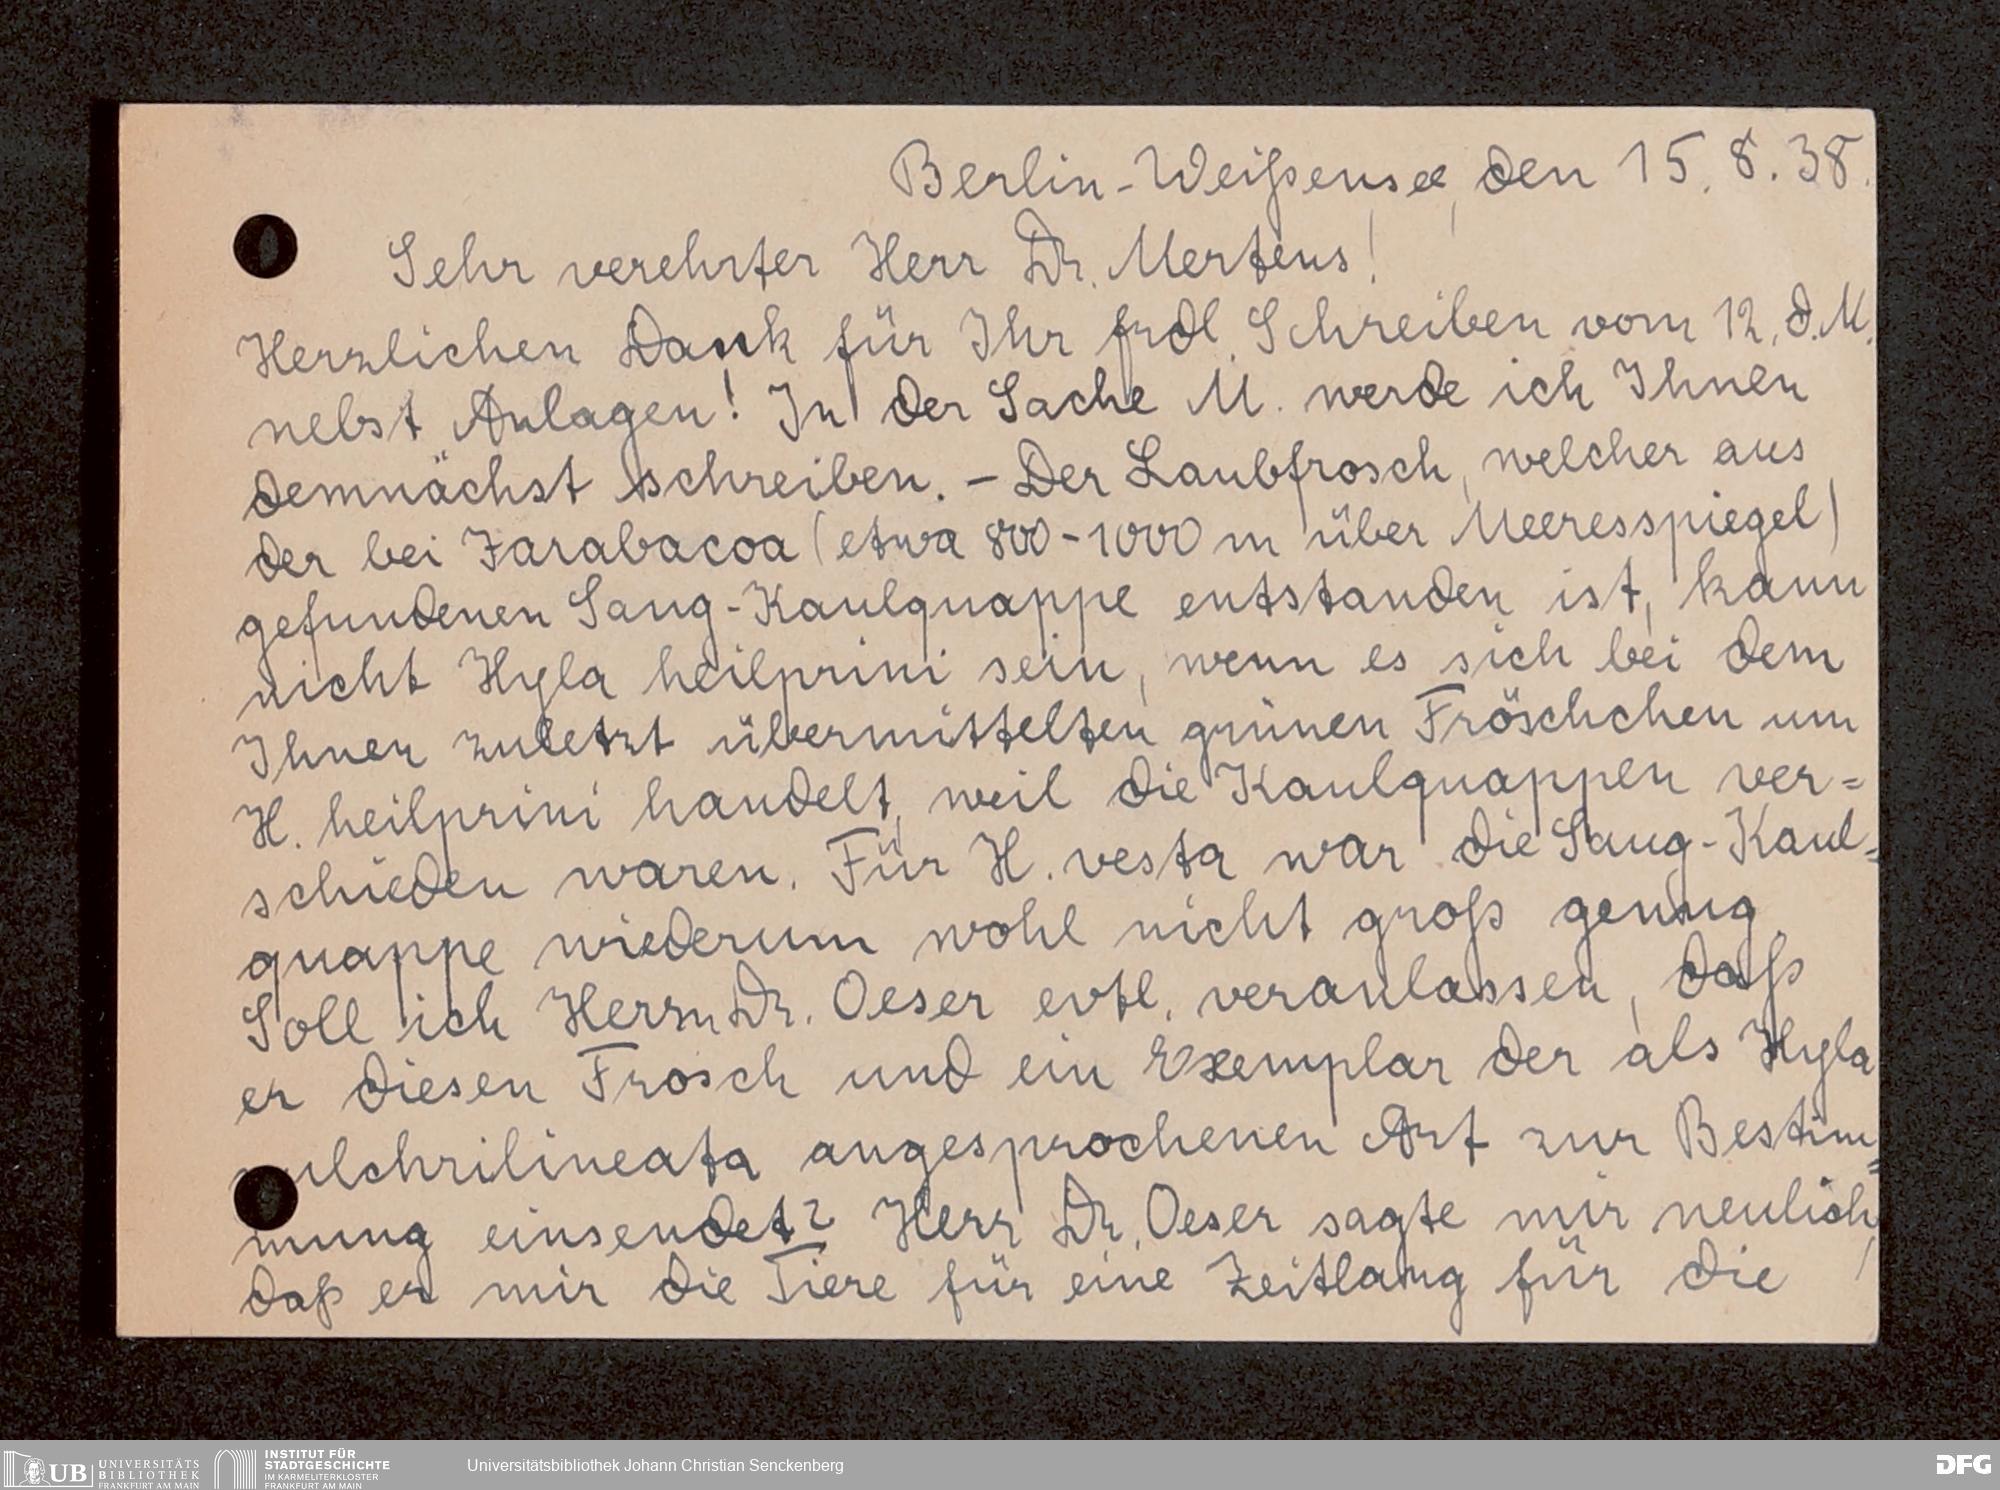 Berlin-Weißensee, den 15. 8. 38.
Sehr verehrter Herr Dr. Mertens!
Herzlichen Dank für Ihr frdl. Schreiben vom 12. d. M.
nebst Anlagen! In der Sache M. werde ich Ihnen
demnächst schreiben. – Der Laubfrosch, welcher aus
der bei Jarabacoa (etwa 800-1000 m über Meeresspiegel)
gefundenen Saug-Kaulquappe entstanden ist, kann
nicht Hyla heilprini sein, wenn es sich bei dem
Ihnen zuletzt übermittelten grünen Fröschchen um
H. heilprini handelt, weil die Kaulquappen ver=
schieden waren. Für H. vasta war die Saug-Kaul=
quappe wiederum wohl nicht groß genug.
Soll ich Herrn Dr. Oeser evtl. veranlassen, daß
er diesen Frosch und ein Exemplar der als Hyla
pulchrilineata angesprochenen Art zur Bestim=
mung einsendet? Herr Dr. Oeser sagte mir neulich,
daß er mir die Tiere für eine Zeitlang für die
UB UNIVERSITÄTS
BIBLIOTHEK
FRANKFURT AM MAIN
INSTITUT FÜR
STADTGESCHICHTE
IM KARMELITERKLOSTER
FRANKFURT AM MAIN
Universitätsbibliothek Johann Christian Senckenberg
DFG